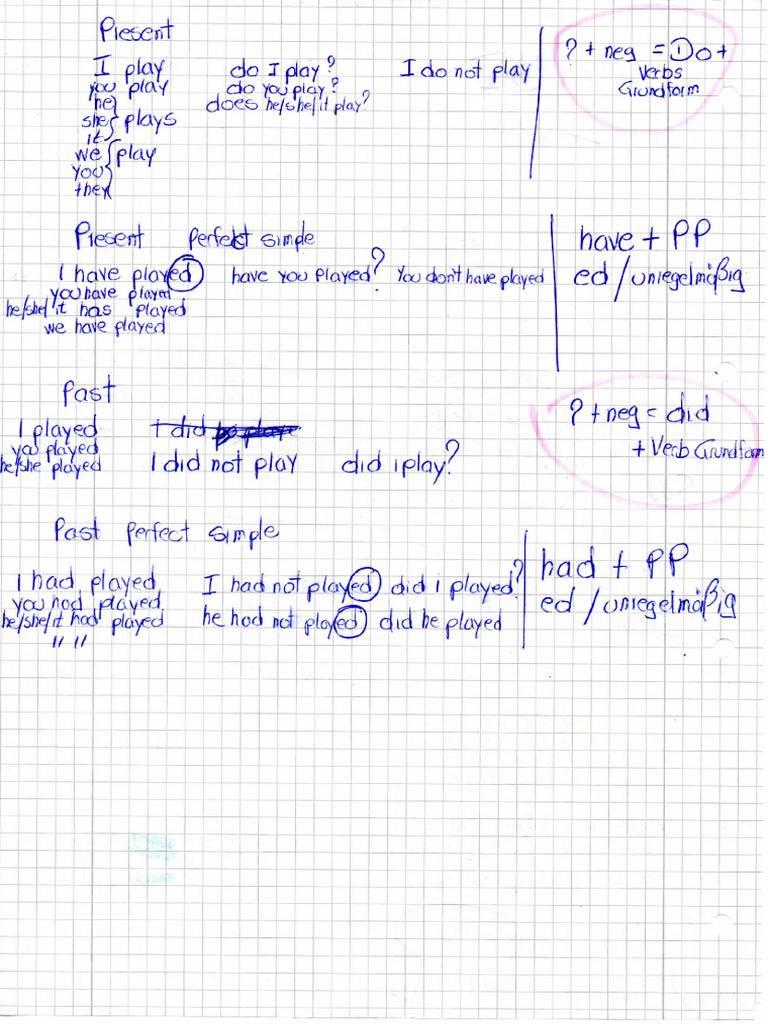 Present
I play do I play? I do not play
you play do you play?
he does he/she/it play?
she plays
it
we play
you
they
? + neg = Do +
Verbs
Grundform
Present perfekt simple
I have played have you played? You don't have played
you have played
he/she/it has played
we have played
have + PP
ed / unregelmäßig
Past
I played I did
you played
he/she played I did not play did i play?
? + neg = did
+ Verb Grundform
Past perfect simple
I had played I had not played did i played?
you had played
he/she/it had played he had not played did he played
" "
had + PP
ed / unregelmäßig